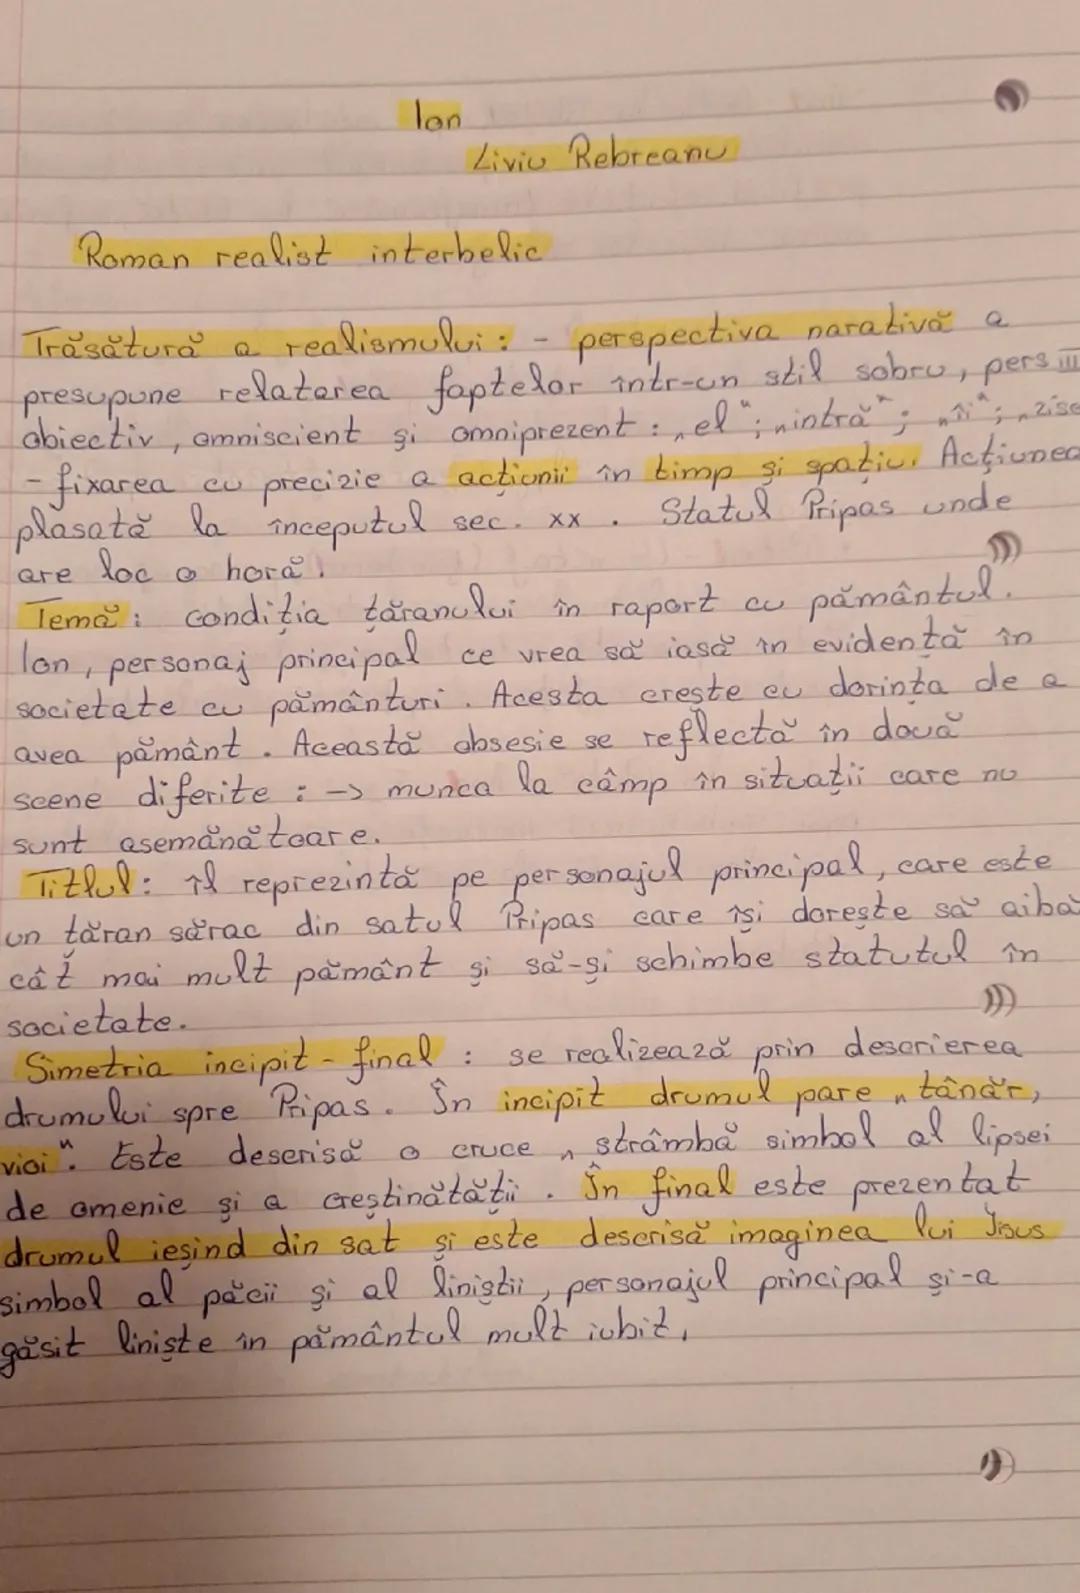 Ion
Liviu Rebreanu
Roman realist interbelic
Trăsătură a realismului: - perspectiva narativă a
presupune relatarea faptelor într-un stil sobru, pers III
obiectiv, omniscient și omniprezent: „el"; „intră"; „îi"; „zise
- fixarea cu precizie a acțiunii în timp și spațiu. Acțiunea
plasată la începutul sec. XX. Statul Pripas unde
are loc o horă.
Temă: condiția țăranului în raport cu pământul.
Ion, personaj principal ce vrea să iasă în evidență în
societate cu pământuri. Acesta crește cu dorința de a
avea pământ. Această obsesie se reflectă în două
scene diferite: -> munca la câmp în situații care nu
sunt asemănătoare.
Titlul: îl reprezintă pe personajul principal, care este
un țăran sărac din satul Pripas care își dorește să aibă
cât mai mult pământ și să-și schimbe statutul în
societate.
Simetria incipit - final: se realizează prin descrierea
drumului spre Pripas. În incipit drumul pare „tânăr,
vioi". Este descrisă o cruce „strâmbă simbol al lipsei
de omenie și a creștinătății. În final este prezentat
drumul ieșind din sat și este descrisă imaginea lui Isus
simbol al păcii și al liniștii, personajul principal și-a
găsit liniște în pământul mult iubit.